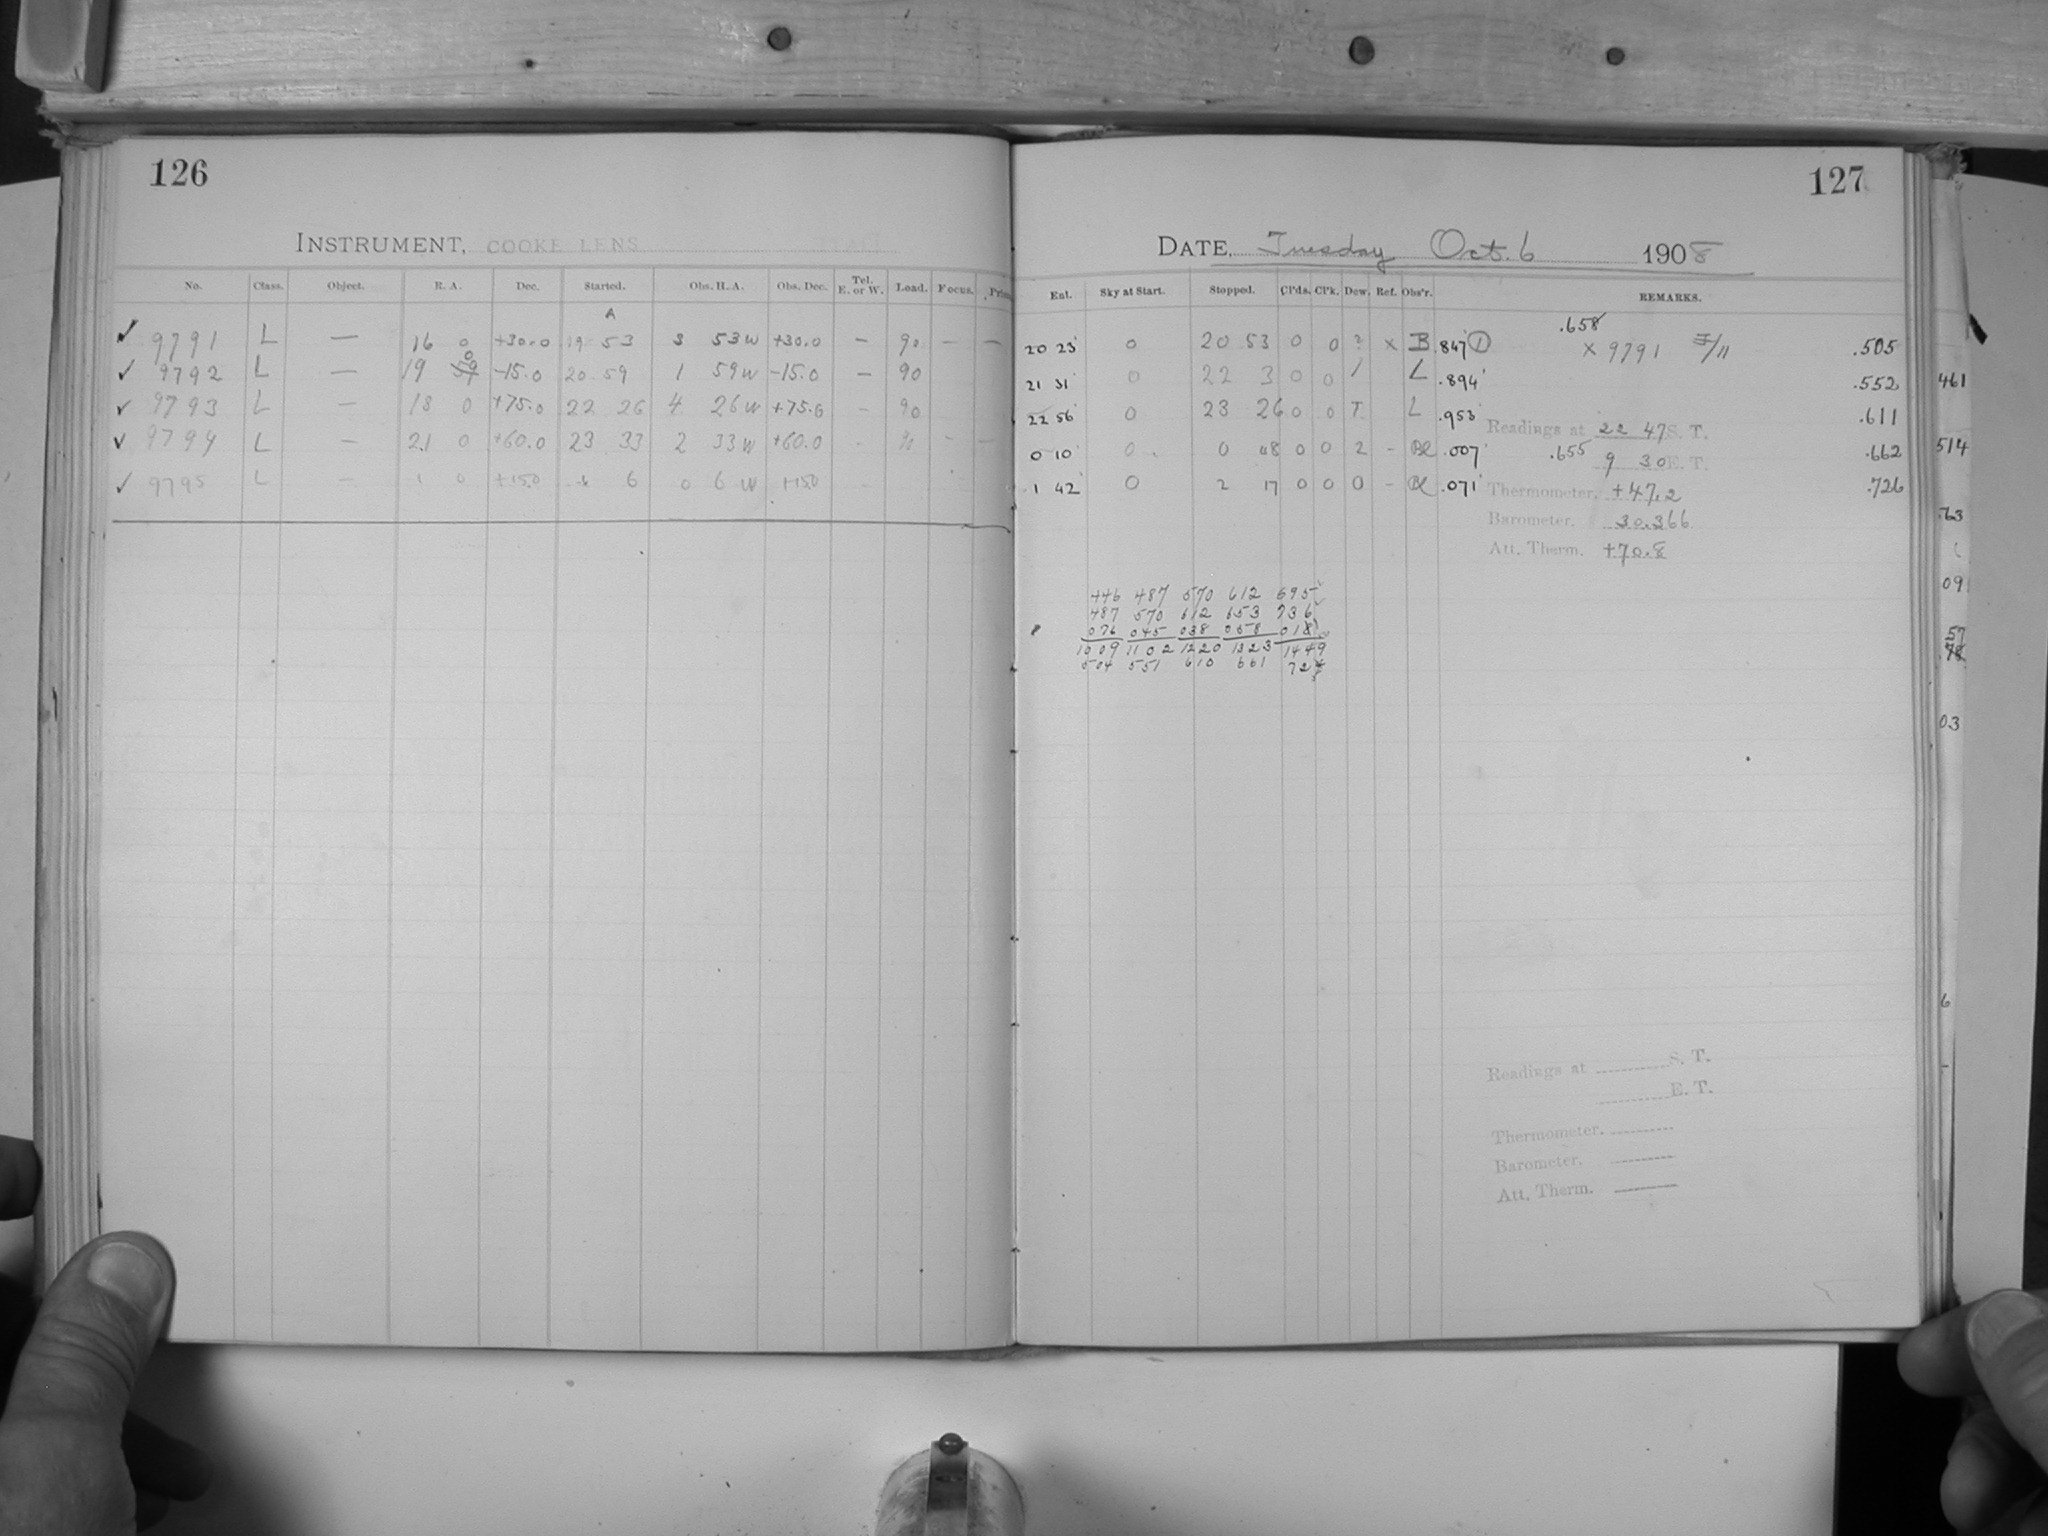 126
INSTRUMENT, COOKE LENS
No. Class. Object. R. A. Dec. Started. Obs. H. A. Obs. Dec. Tel. E. or W. Load. Focus.
A
✓ 9791 L — 16 0 +30.0 19 53 3 53 W +30.0 — 90 — —
✓ 9792 L — 19 0 -15.0 20 59 1 59 W -15.0 — 90
✓ 9793 L — 18 0 +75.0 22 26 4 26 W +75.0 - 90
✓ 9794 L — 21 0 +60.0 23 33 2 33 W +60.0 - - -
✓ 9795 L — 1 0 +15.0 6 0 6 W +15.0
127
DATE, Tuesday Oct. 6 1908
Ent. Sky at Start. Stopped. Cl'ds. Cl'k. Dew. Ref. Obs'r. REMARKS.
.658
20 23 0 20 53 0 0 ? x B .847 ① x 9791 .505
21 31 0 22 3 0 0 / L .894 .552
22 56 0 23 26 0 0 T L .953 .611
Readings at 22 47 S. T.
0 10 0 0 48 0 0 2 - Bl .007 .655 9 30 E. T. .662
1 42 0 2 17 0 0 0 - Bl .071 .726
Thermometer. +47.2
Barometer. 30.366
Att. Therm. +70.8
446 487 570 612 695
487 570 612 653 736
076 045 038 058 018
1009 1102 1220 1323 1449
504 551 610 661 724
Readings at S. T.
E. T.
Thermometer.
Barometer.
Att. Therm.
461
514
63
09
57
03
6